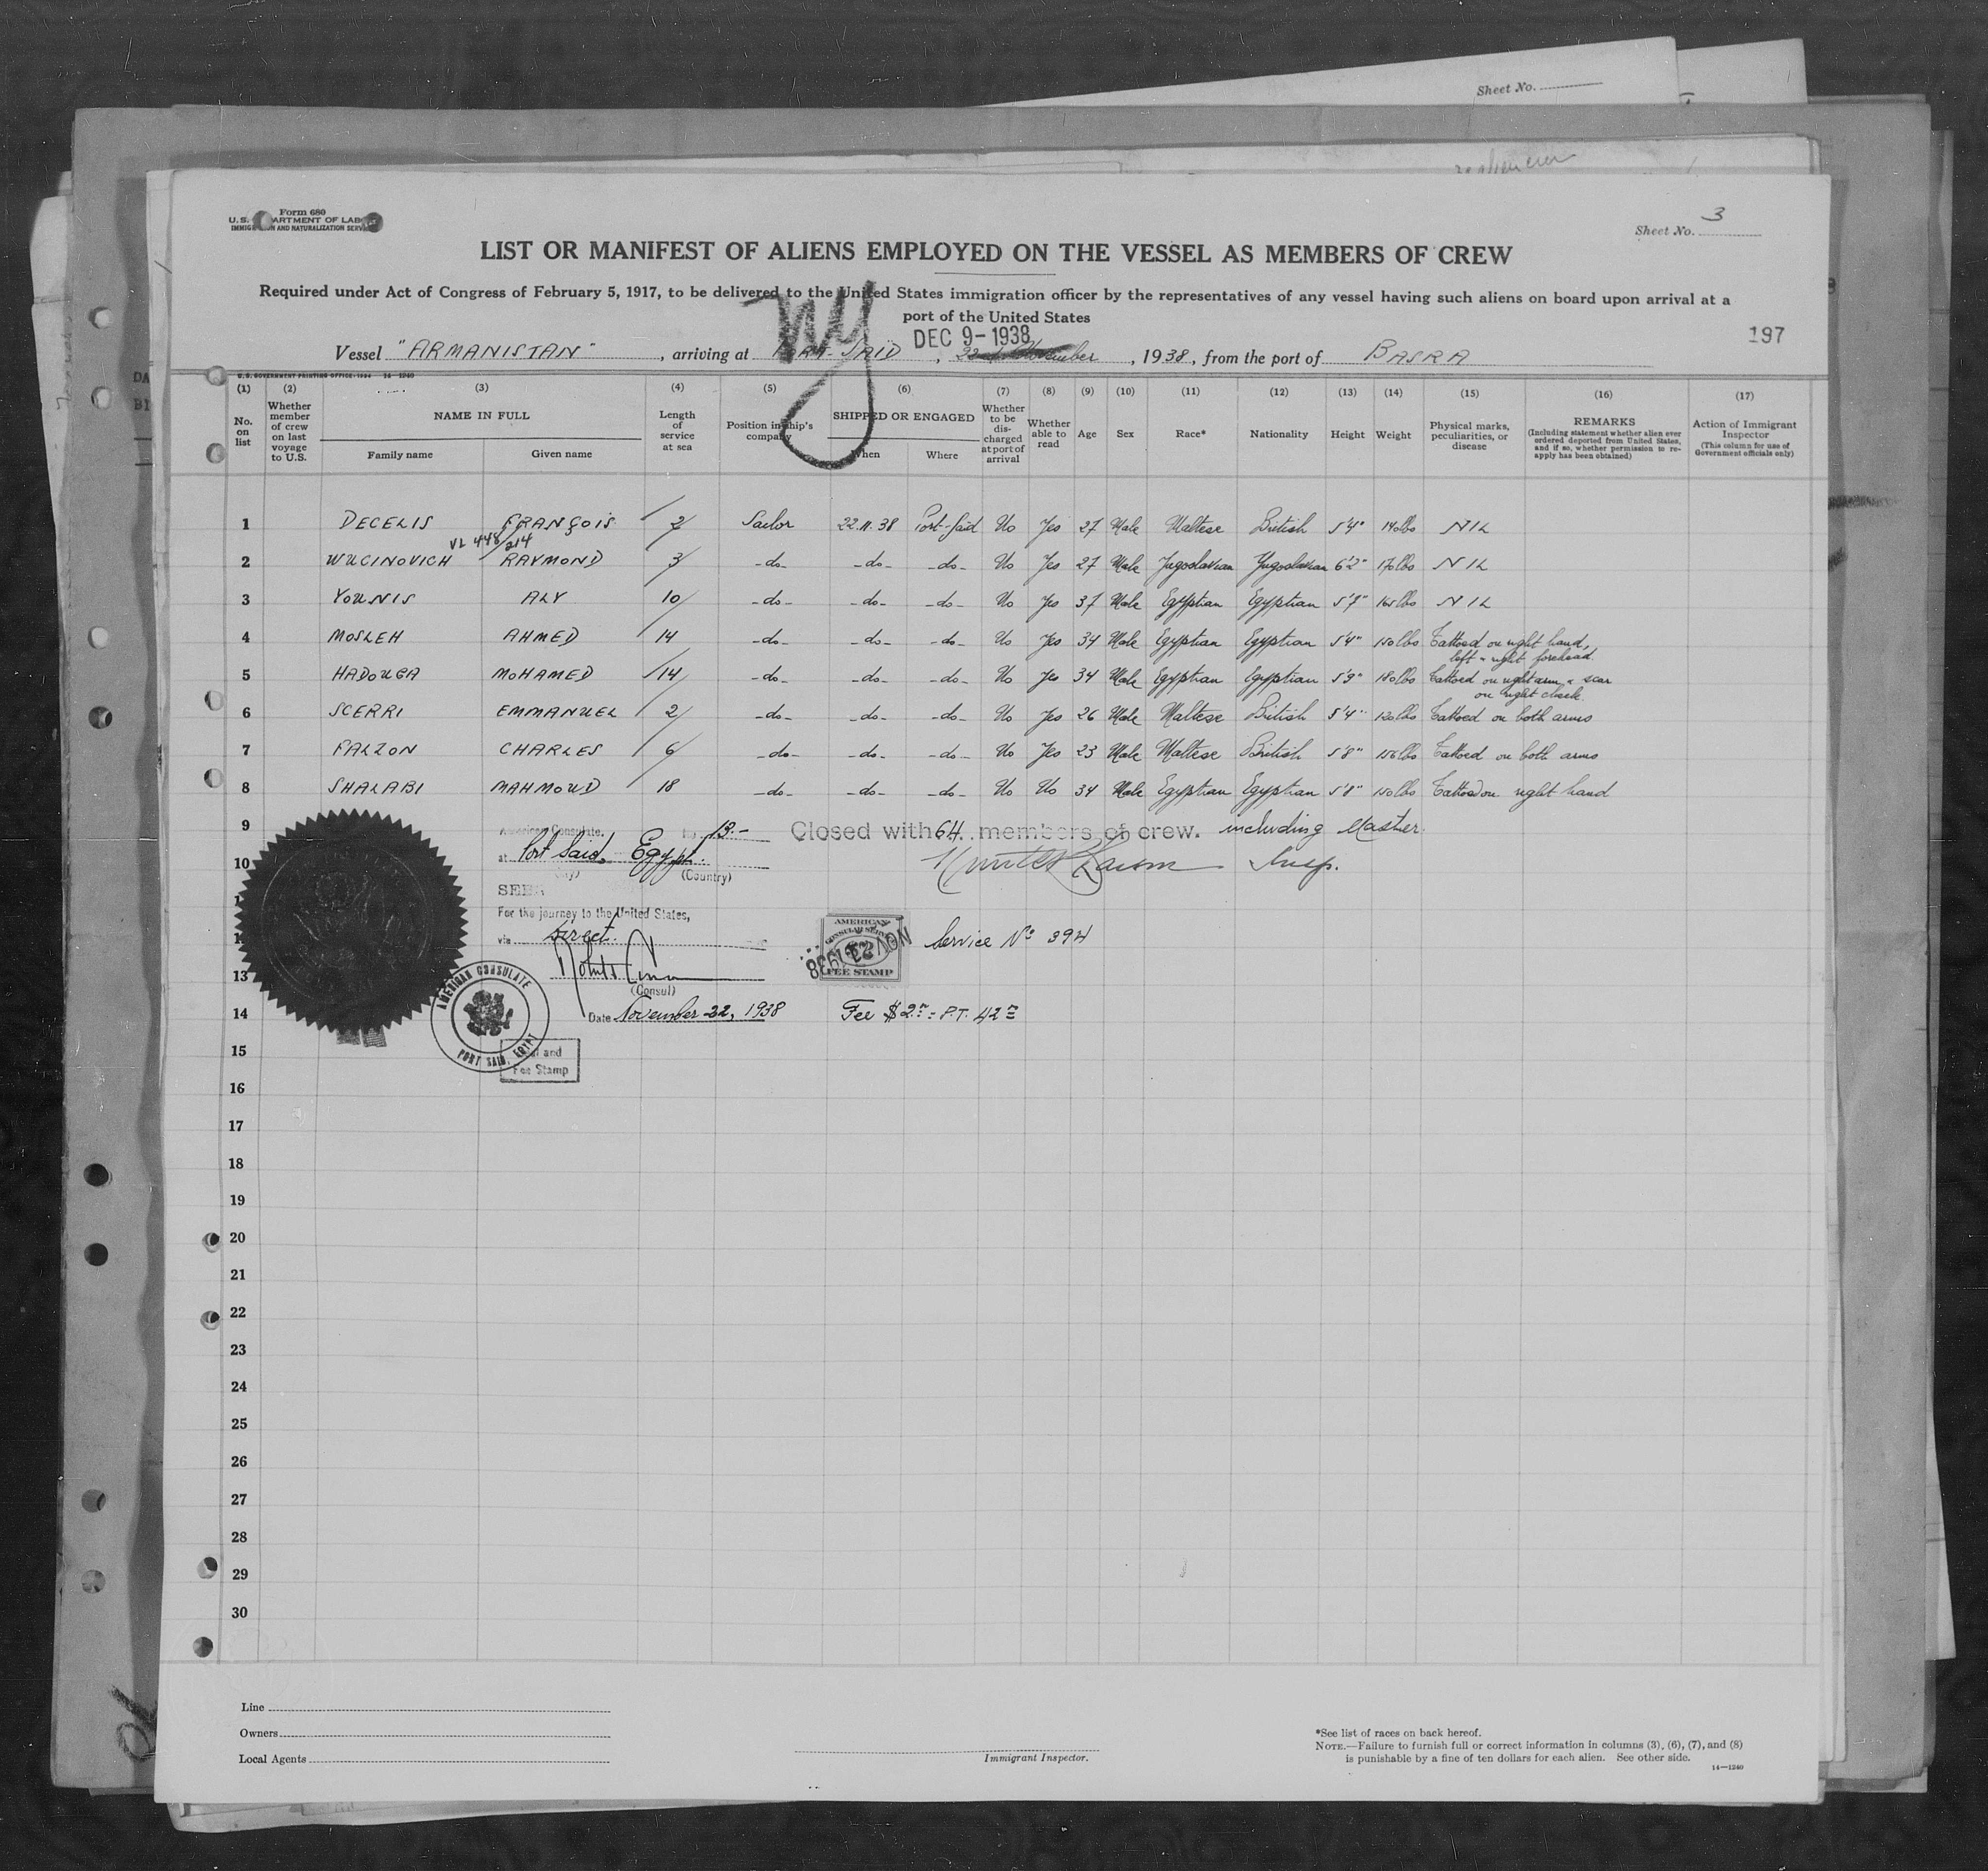 Sheet No.
Form 680
U.S. DEPARTMENT OF LABOR
IMMIGRATION AND NATURALIZATION SERVICE
Sheet No. 3
LIST OR MANIFEST OF ALIENS EMPLOYED ON THE VESSEL AS MEMBERS OF CREW
Required under Act of Congress of February 5, 1917, to be delivered to the United States immigration officer by the representatives of any vessel having such aliens on board upon arrival at a
port of the United States
NY
DEC 9-1938
197
Vessel "ARMANISTAN", arriving at PORT-SAID, 22nd November, 1938, from the port of BASRA
U.S. GOVERNMENT PRINTING OFFICE: 1934 14-1240
(1) (2) (3) (4) (5) (6) (7) (8) (9) (10) (11) (12) (13) (14) (15) (16) (17)
No. on list
Whether member of crew on last voyage to U.S.
NAME IN FULL
Family name
Given name
Length of service at sea
Position in ship's company
SHIPPED OR ENGAGED
When
Where
Whether to be discharged at port of arrival
Whether able to read
Age
Sex
Race*
Nationality
Height
Weight
Physical marks, peculiarities, or disease
REMARKS
(Including statement whether alien ever ordered deported from United States, and if so, whether permission to reapply has been obtained)
Action of Immigrant Inspector
(This column for use of Government officials only)
1 DECELIS FRANÇOIS 2 Sailor 22.11.38 Port-Said No Yes 27 Male Maltese British 5'4" 140lbs NIL
VL 448/214
2 WUCINOVICH RAYMOND 3 -do- -do- -do- No Yes 27 Male Jugoslavian Yugoslavian 6'2" 170lbs NIL
3 YOUNIS ALY 10 -do- -do- -do- No Yes 37 Male Egyptian Egyptian 5'7" 165lbs NIL
4 MOSLEH AHMED 14 -do- -do- -do- No Yes 34 Male Egyptian Egyptian 5'4" 150lbs Tattoed on right hand,
left & right forehead.
5 HADOUGA MOHAMED 14 -do- -do- -do- No Yes 34 Male Egyptian Egyptian 5'9" 180lbs Tattoed on right arm & scar
on right cheek.
6 SCERRI EMMANUEL 2 -do- -do- -do- No Yes 26 Male Maltese British 5'4" 130lbs Tattoed on both arms
7 FALZON CHARLES 6 -do- -do- -do- No Yes 23 Male Maltese British 5'8" 156lbs Tattoed on both arms
8 SHALABI MAHMOUD 18 -do- -do- -do- No No 34 Male Egyptian Egyptian 5'8" 150lbs Tattoed on right hand
9 American Consulate, No. 13.- Closed with 64 members of crew. including Master.
10 at Port Said, Egypt.
(City) (Country)
SEEN
For the journey to the United States,
via direct.
AMERICAN CONSULAR SERVICE FEE STAMP
NOV 22 1938
Service No 394
13
(Consul)
14 Date November 22, 1938 Fee $2.00 = P.T. 42
AMERICAN CONSULATE PORT SAID, EGYPT
Seal and
Fee Stamp
15
16
17
18
19
20
21
22
23
24
25
26
27
28
29
30
Line
Owners
Local Agents
Immigrant Inspector.
*See list of races on back hereof.
NOTE.—Failure to furnish full or correct information in columns (3), (6), (7), and (8)
is punishable by a fine of ten dollars for each alien. See other side.
14-1240